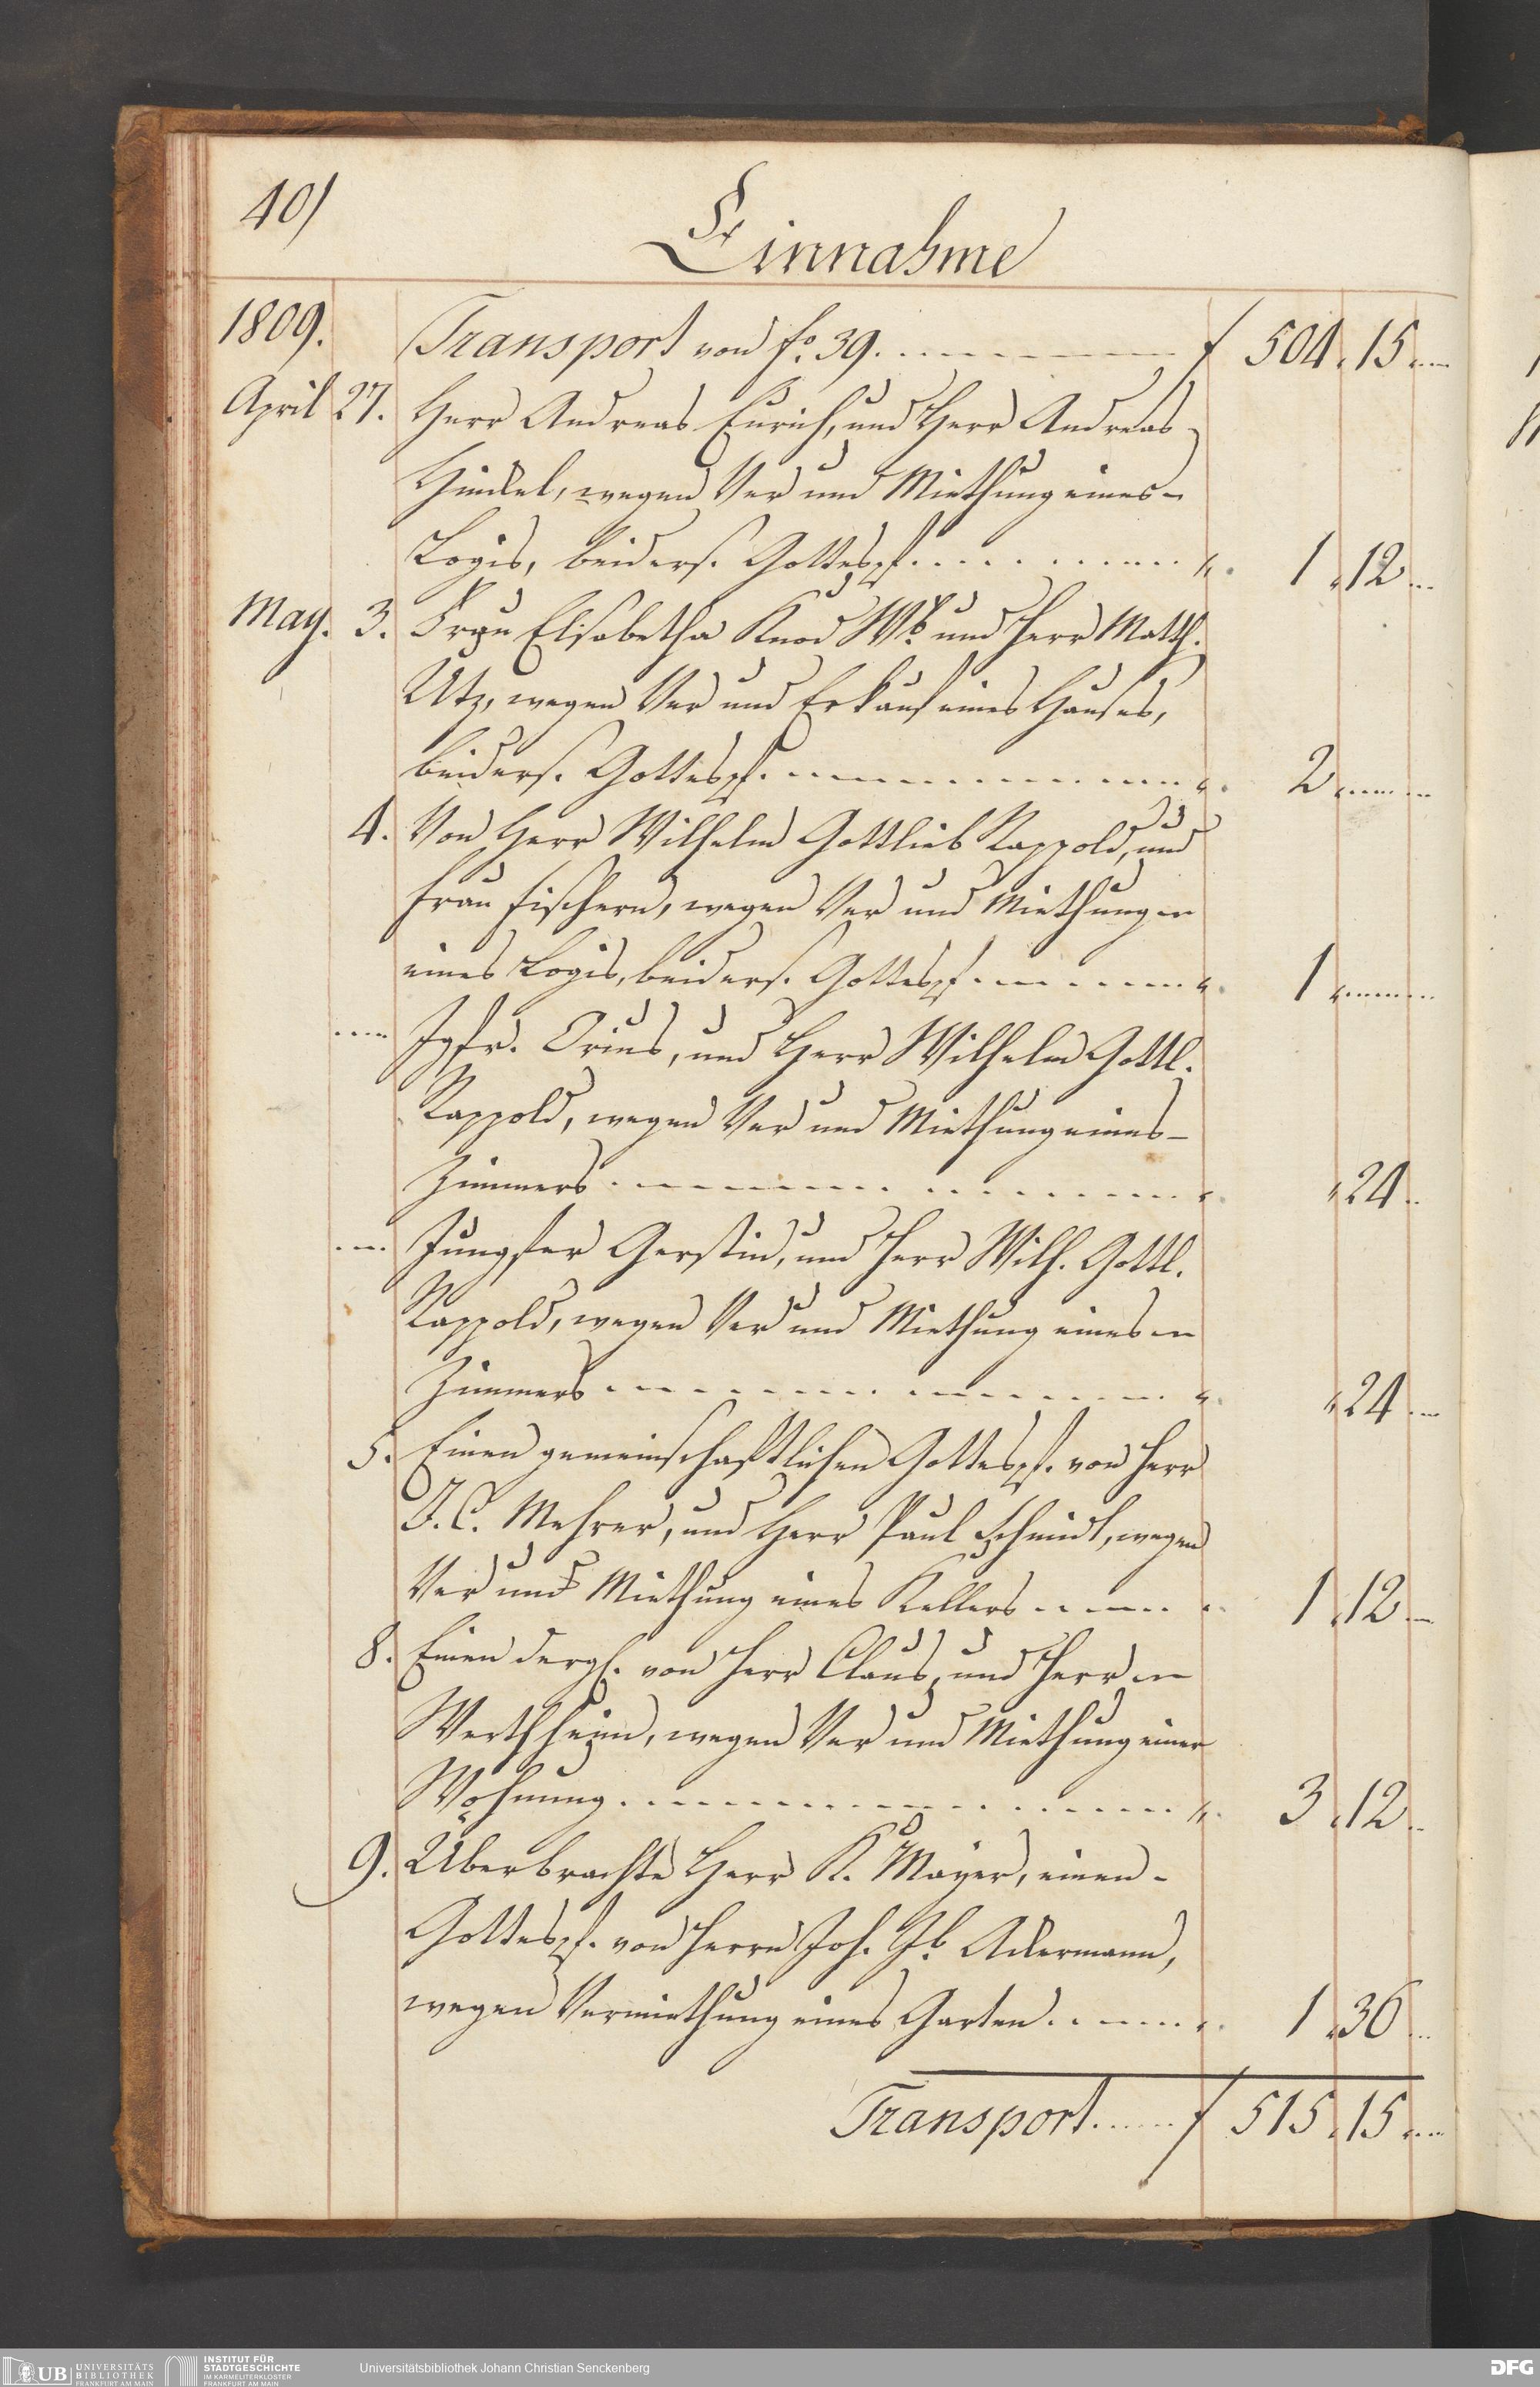 40)
Einnahme
1809.
Transport von fo. 39. f 504. 15.
April 27. Herr Andreas Eurich, und Herr Andreas
Hinkel, wegen Ver und Miethung eines
Logis, beiders. Gottespf. 1. 12.
May. 3. Frau Elisabetha Knod Wb. und Herr Matth.
Utz, wegen Ver und Erkauf eines Hauses,
beiders. Gottespf. 2
4. Von Herr Wilhelm Gottlieb Rappold, und
Frau Fischern, wegen Ver und Miethung
eines Logis, beiders. Gottespf. 1
Jgfr. Orius, und Herr Wilhelm Gottl.
Rappold, wegen Ver und Miethung eines
Zimmers 24.
Jungfer Gerstin, und Herr Wilh. Gottl.
Rappold, wegen Ver und Miethung eines
Zimmers 24.
5. Einen gemeinschaftlichen Gottespf. von Herr
J. C. Mehrer, und Herr Paul Schmidt, wegen
Ver und Miethung eines Kellers 1. 12
8. Einen dergl. von Herr Claus, und Herr
Werthheim, wegen Ver und Miethung einer
Wohnung 3. 12.
9. Überbrachte Herr K. Mayer, einen
Gottespf. von Herrn Joh. Jb. Ackermann,
wegen Vermiethung eines Garten 1. 36
Transport f 515. 15.
UB UNIVERSITÄTS
BIBLIOTHEK
FRANKFURT AM MAIN
INSTITUT FÜR
STADTGESCHICHTE
IM KARMELITERKLOSTER
FRANKFURT AM MAIN
Universitätsbibliothek Johann Christian Senckenberg
DFG